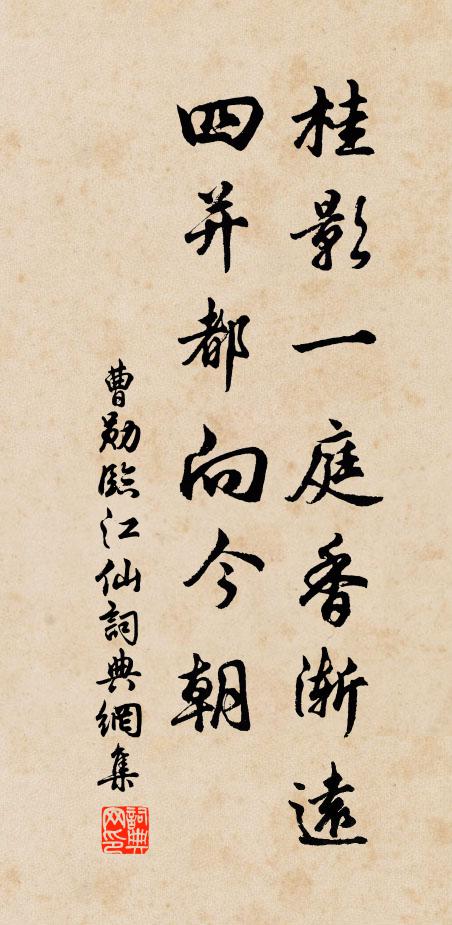 桂影一庭香渐遠
四并都向今朝
曹勋臨江仙詞典網集
詞典网印